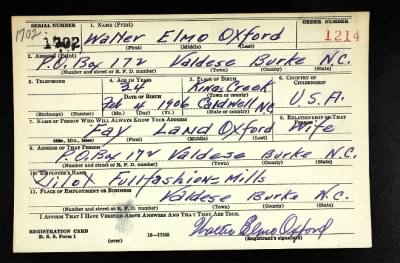 SERIAL NUMBER 1. NAME (Print) ORDER NUMBER
1702 1702 Walter Elmo Oxford 1214
(First) (Middle) (Last)
2. ADDRESS (Print)
P.O. Box 172 Valdese Burke N.C.
(Number and street or R. F. D. number) (Town) (County) (State)
3. TELEPHONE 4. AGE IN YEARS 5. PLACE OF BIRTH 6. COUNTRY OF CITIZENSHIP
34 Kings Creek
DATE OF BIRTH (Town or county)
Feb 4 1906 Caldwell NC U.S.A.
(Exchange) (Number) (Mo.) (Day) (Yr.) (State or country)
7. NAME OF PERSON WHO WILL ALWAYS KNOW YOUR ADDRESS 8. RELATIONSHIP OF THAT PERSON
Fay Land Oxford Wife
(Mr., Mrs., Miss) (First) (Middle) (Last)
9. ADDRESS OF THAT PERSON
P.O. Box 172 Valdese Burke N.C.
(Number and street or R. F. D. number) (Town) (County) (State)
10. EMPLOYER'S NAME
Pilot Full Fashion Mills
11. PLACE OF EMPLOYMENT OR BUSINESS
Valdese Burke N.C.
(Number and street or R. F. D. number) (Town) (County) (State)
I AFFIRM THAT I HAVE VERIFIED ABOVE ANSWERS AND THAT THEY ARE TRUE.
REGISTRATION CARD Walter Elmo Oxford
D. S. S. Form 1 (over) 16—17105 (Registrant's signature)